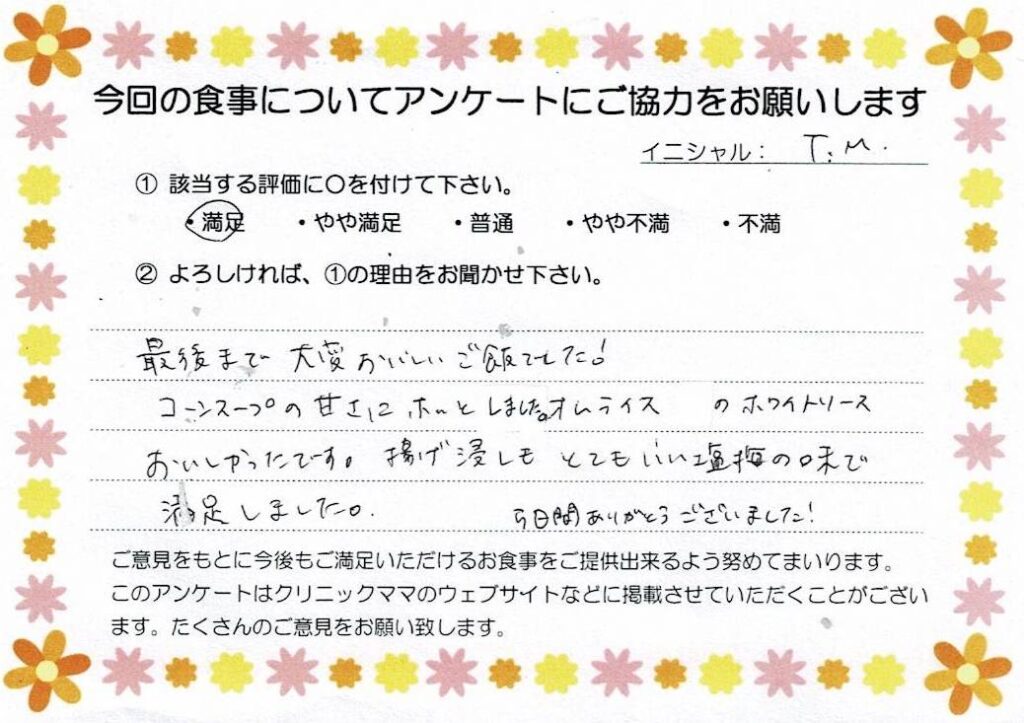 今回の食事についてアンケートにご協力をお願いします
イニシャル： T.M.
① 該当する評価に〇を付けて下さい。
・満足 ・やや満足 ・普通 ・やや不満 ・不満
② よろしければ、①の理由をお聞かせ下さい。
最後まで 大変おいしいご飯でした!
コーンスープの甘さにホッとしました。オムライス のホワイトソース
おいしかったです。揚げ浸しもとてもいい塩梅の味で
満足しました。 5日間ありがとうございました!
ご意見をもとに今後もご満足いただけるお食事をご提供出来るよう努めてまいります。
このアンケートはクリニックママのウェブサイトなどに掲載させていただくことがござい
ます。たくさんのご意見をお願い致します。